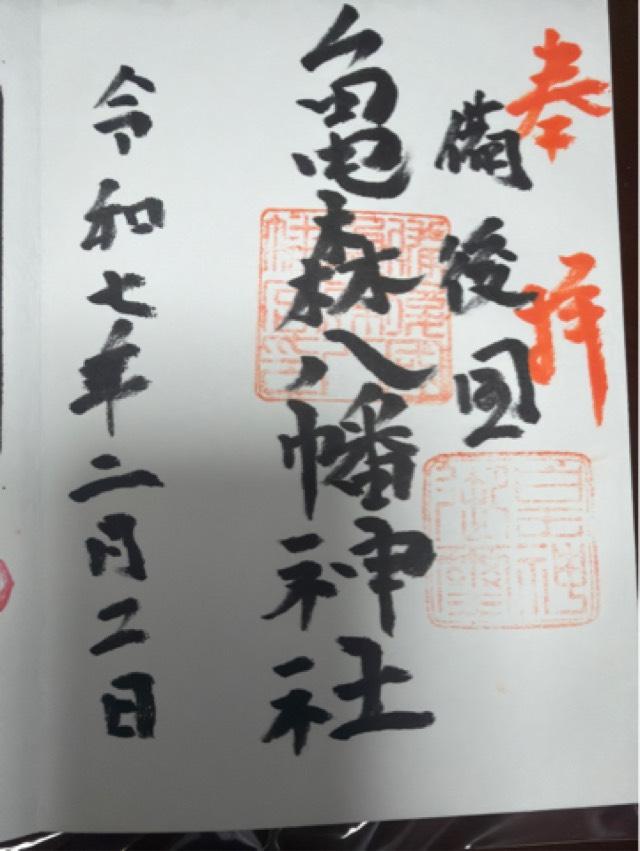 奉拝
備後国
亀森八幡神社
令和七年二月二日